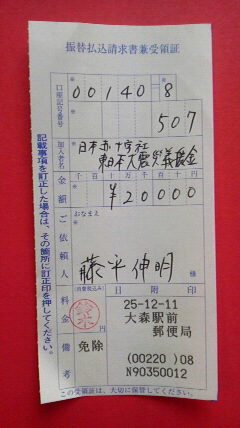 振替払込請求書兼受領証
口座記号番号
00140-8
507
加入者名
日本赤十字社
東日本大震災義援金
金額
千百十万千百十円
¥20000
ご依頼人
おなまえ
藤平伸明
様
(消費税込み)
料金
円
日附印
25-12-11
大森駅前
郵便局
備考
免除
(00220)08
N90350012
この受領証は、大切に保管してください。
記載事項を訂正した場合は、その箇所に訂正印を押してください。